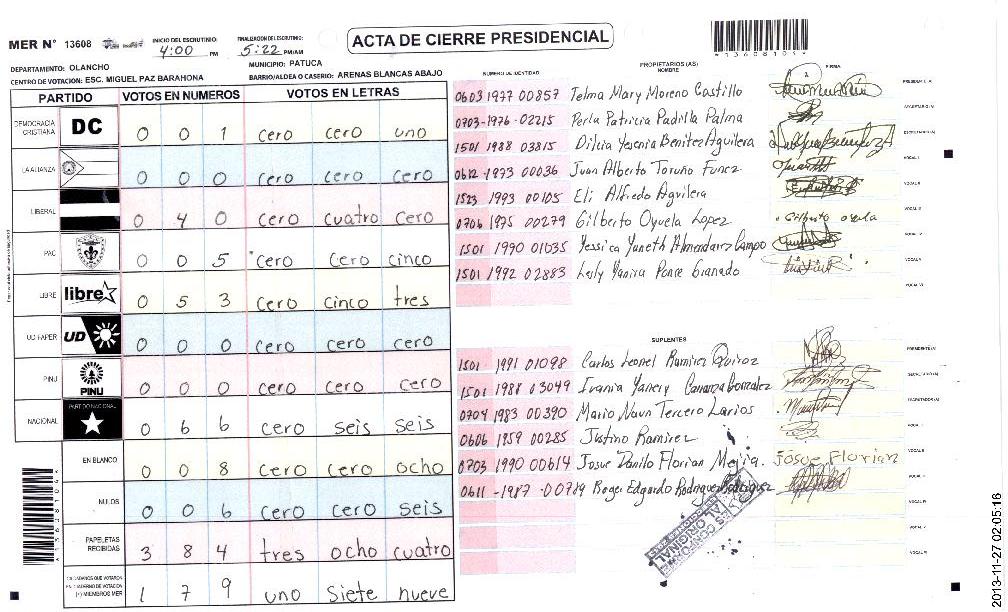 MER N° 13608
INICIO DEL ESCRUTINIO: 4:00 PM
FINALIZACION DEL ESCRUTINIO: 5:22 PM/AM
ACTA DE CIERRE PRESIDENCIAL
*13608104*
DEPARTAMENTO: OLANCHO
MUNICIPIO: PATUCA
CENTRO DE VOTACION: ESC. MIGUEL PAZ BARAHONA
BARRIO/ALDEA O CASERIO: ARENAS BLANCAS ABAJO
PARTIDO VOTOS EN NUMEROS VOTOS EN LETRAS
DEMOCRACIA CRISTIANA DC 0 0 1 cero cero uno
LA ALIANZA 0 0 0 cero cero cero
LIBERAL 0 4 0 cero cuatro cero
PAC 0 0 5 cero cero cinco
LIBRE libre 0 5 3 cero cinco tres
UD FAPER UD 0 0 0 cero cero cero
PINU PINU 0 0 0 cero cero cero
NACIONAL PARTIDO NACIONAL 0 6 6 cero seis seis
EN BLANCO 0 0 8 cero cero ocho
NULOS 0 0 6 cero cero seis
PAPELETAS RECIBIDAS 3 8 4 tres ocho cuatro
CIUDADANOS QUE VOTARON EN CUADERNO DE VOTACION (+) MIEMBROS MER 1 7 9 uno siete nueve
NUMERO DE IDENTIDAD PROPIETARIOS (AS) NOMBRE FIRMA
0603 1977 00857 Telma Mary Moreno Castillo PRESIDENTE (A)
0703-1976-02215 Perla Patricia Padilla Palma SECRETARIO (A)
1501 1988 03815 Dilcia Yesenia Benitez Aguilera ESCRUTADOR (A)
0612-1973 00036 Juan Alberto Toruño Funez VOCAL I
1523 1993 00105 Eli Alfredo Aguilera VOCAL II
0706 1975 00279 Gilberto Oyuela Lopez Gilberto oyela VOCAL III
1501 1990 01035 Yessica Yaneth Almendarez Campo VOCAL IV
1501 1992 02883 Lesly Yanira Ponce Granado VOCAL V
VOCAL VI
SUPLENTES
1501 1991 01098 Carlos Leonel Ramirez Quiroz PRESIDENTE (A)
1501 1988 03049 Irania Yanery Carranza Gonzalez SECRETARIO (A)
0704 1983 00390 Mario Navn Tercero Larios ESCRUTADOR (A)
0606 1959 00285 Justino Ramirez VOCAL I
0703 1990 00614 Josue Danilo Florian Mejia. Josue Florian VOCAL II
0611-1987-00789 Roger Edgardo Rodriguez Rodriguez VOCAL III
VOCAL IV
VOCAL V
VOCAL VI
ORIGINAL
2013-11-27 02:05:16